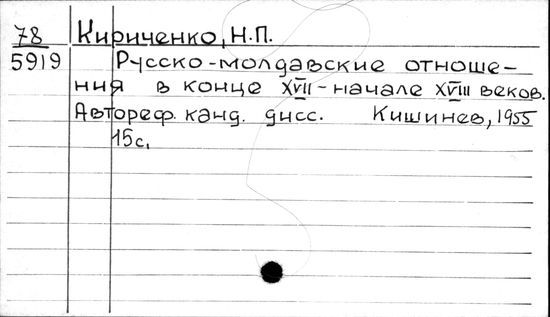 78 Кириченко, Н.П.
5919 Русско-молдавские отноше-
ния в конце XVII - начале XVIII веков.
Автореф. канд. дисс. Кишинев, 1955
15с.